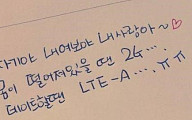 자기야 내여보야 내사랑아~♡
몸이 떨어져있을 땐 2G....
데이트할땐 LTE-A....ㅠㅠ